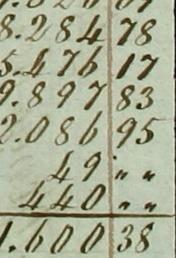 8.284 78
5.476 17
9.897 83
2.086 95
49 " "
440 " "
1.600 38